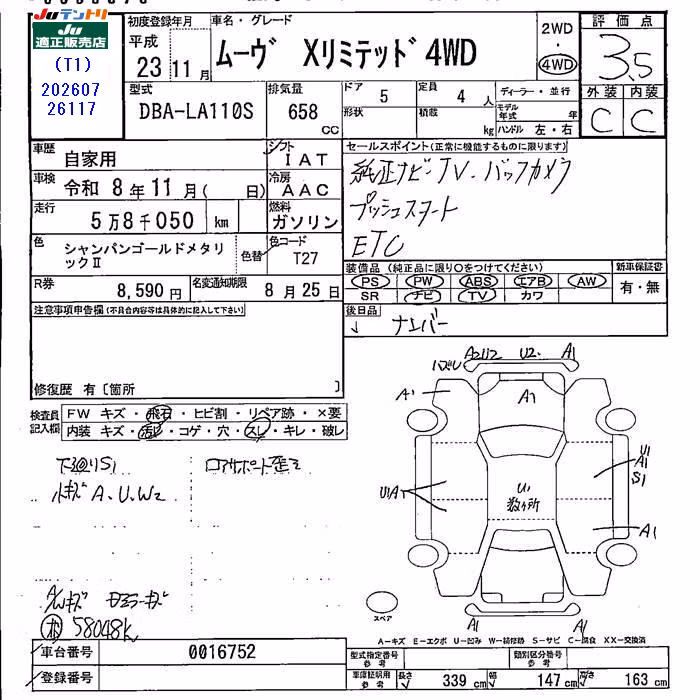 Juテントリ
Ju
適正販売店
(T1)
202607
26117
初度登録年月
平成
23 11月
車名・グレード
ムーヴ Xリミテッド 4WD
2WD
・
4WD
評価点
3.5
外装 内装
C C
型式
DBA-LA110S
排気量
658
cc
ドア 5
形状
定員 4 人
積載 kg
ディーラー・並行
モデル年式 年
ハンドル 左・右
車歴 自家用
シフト IAT
車検 令和 8年11月( 日)
冷房 AAC
走行 5万8千050 km
燃料 ガソリン
色 シャンパンゴールドメタリックⅡ
色替
色コード T27
R券 8,590円
名変通知期限 8月25日
セールスポイント(正常に機能するものに限ります)
純正ナビ・TV・バックカメラ
プッシュスタート
ETC
装備品(純正品に限り○をつけてください)
PS PW ABS エアB AW
SR ナビ TV カワ
新車保証書
有・無
後日品
ナンバー
注意事項申告欄(不具合内容等は具体的に記入して下さい)
修復歴 有〔箇所 〕
検査員記入欄
FW キズ・飛石・ヒビ割・リペア跡・×要
内装 キズ・汚レ・コゲ・穴・スレ・キレ・破レ
下廻りS1
小キズA.U.W2
コアサポート歪ミ
A/Wキズ
58048k
A2U2 U2 A1
A1
A1
U1
数ヶ所
U1A1
U1
A1
S1
A1
A1
A1
スペア
A−キズ E−エクボ U−凹み W−補修跡 S−サビ C−腐食 XX−交換済
車台番号 0016752
登録番号
型式指定番号
参考
類別区分番号
参考
車庫証明用
参考
長さ 339cm 幅 147cm 高さ 163cm